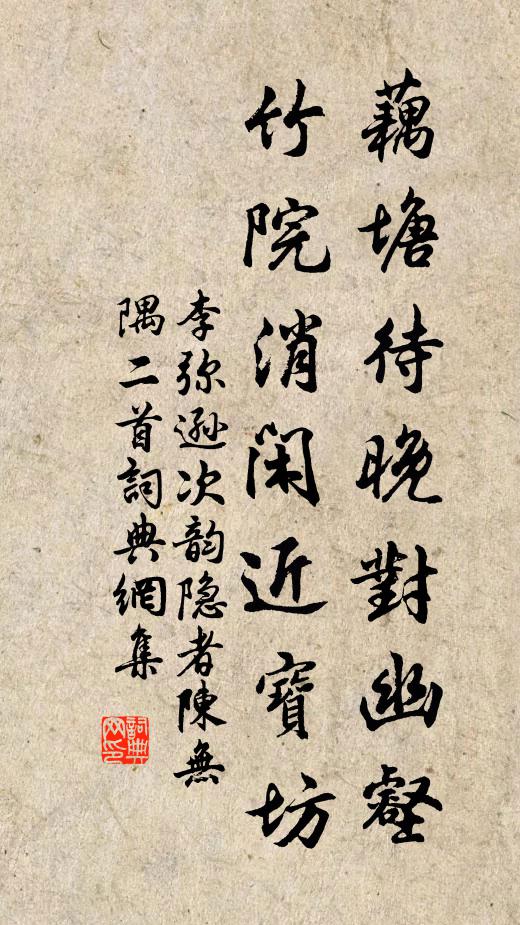 藕塘待晚對幽壑
竹院消閑近寶坊
李弥遜次韵隐者陳無
隅二首詞典網集
詞典网印